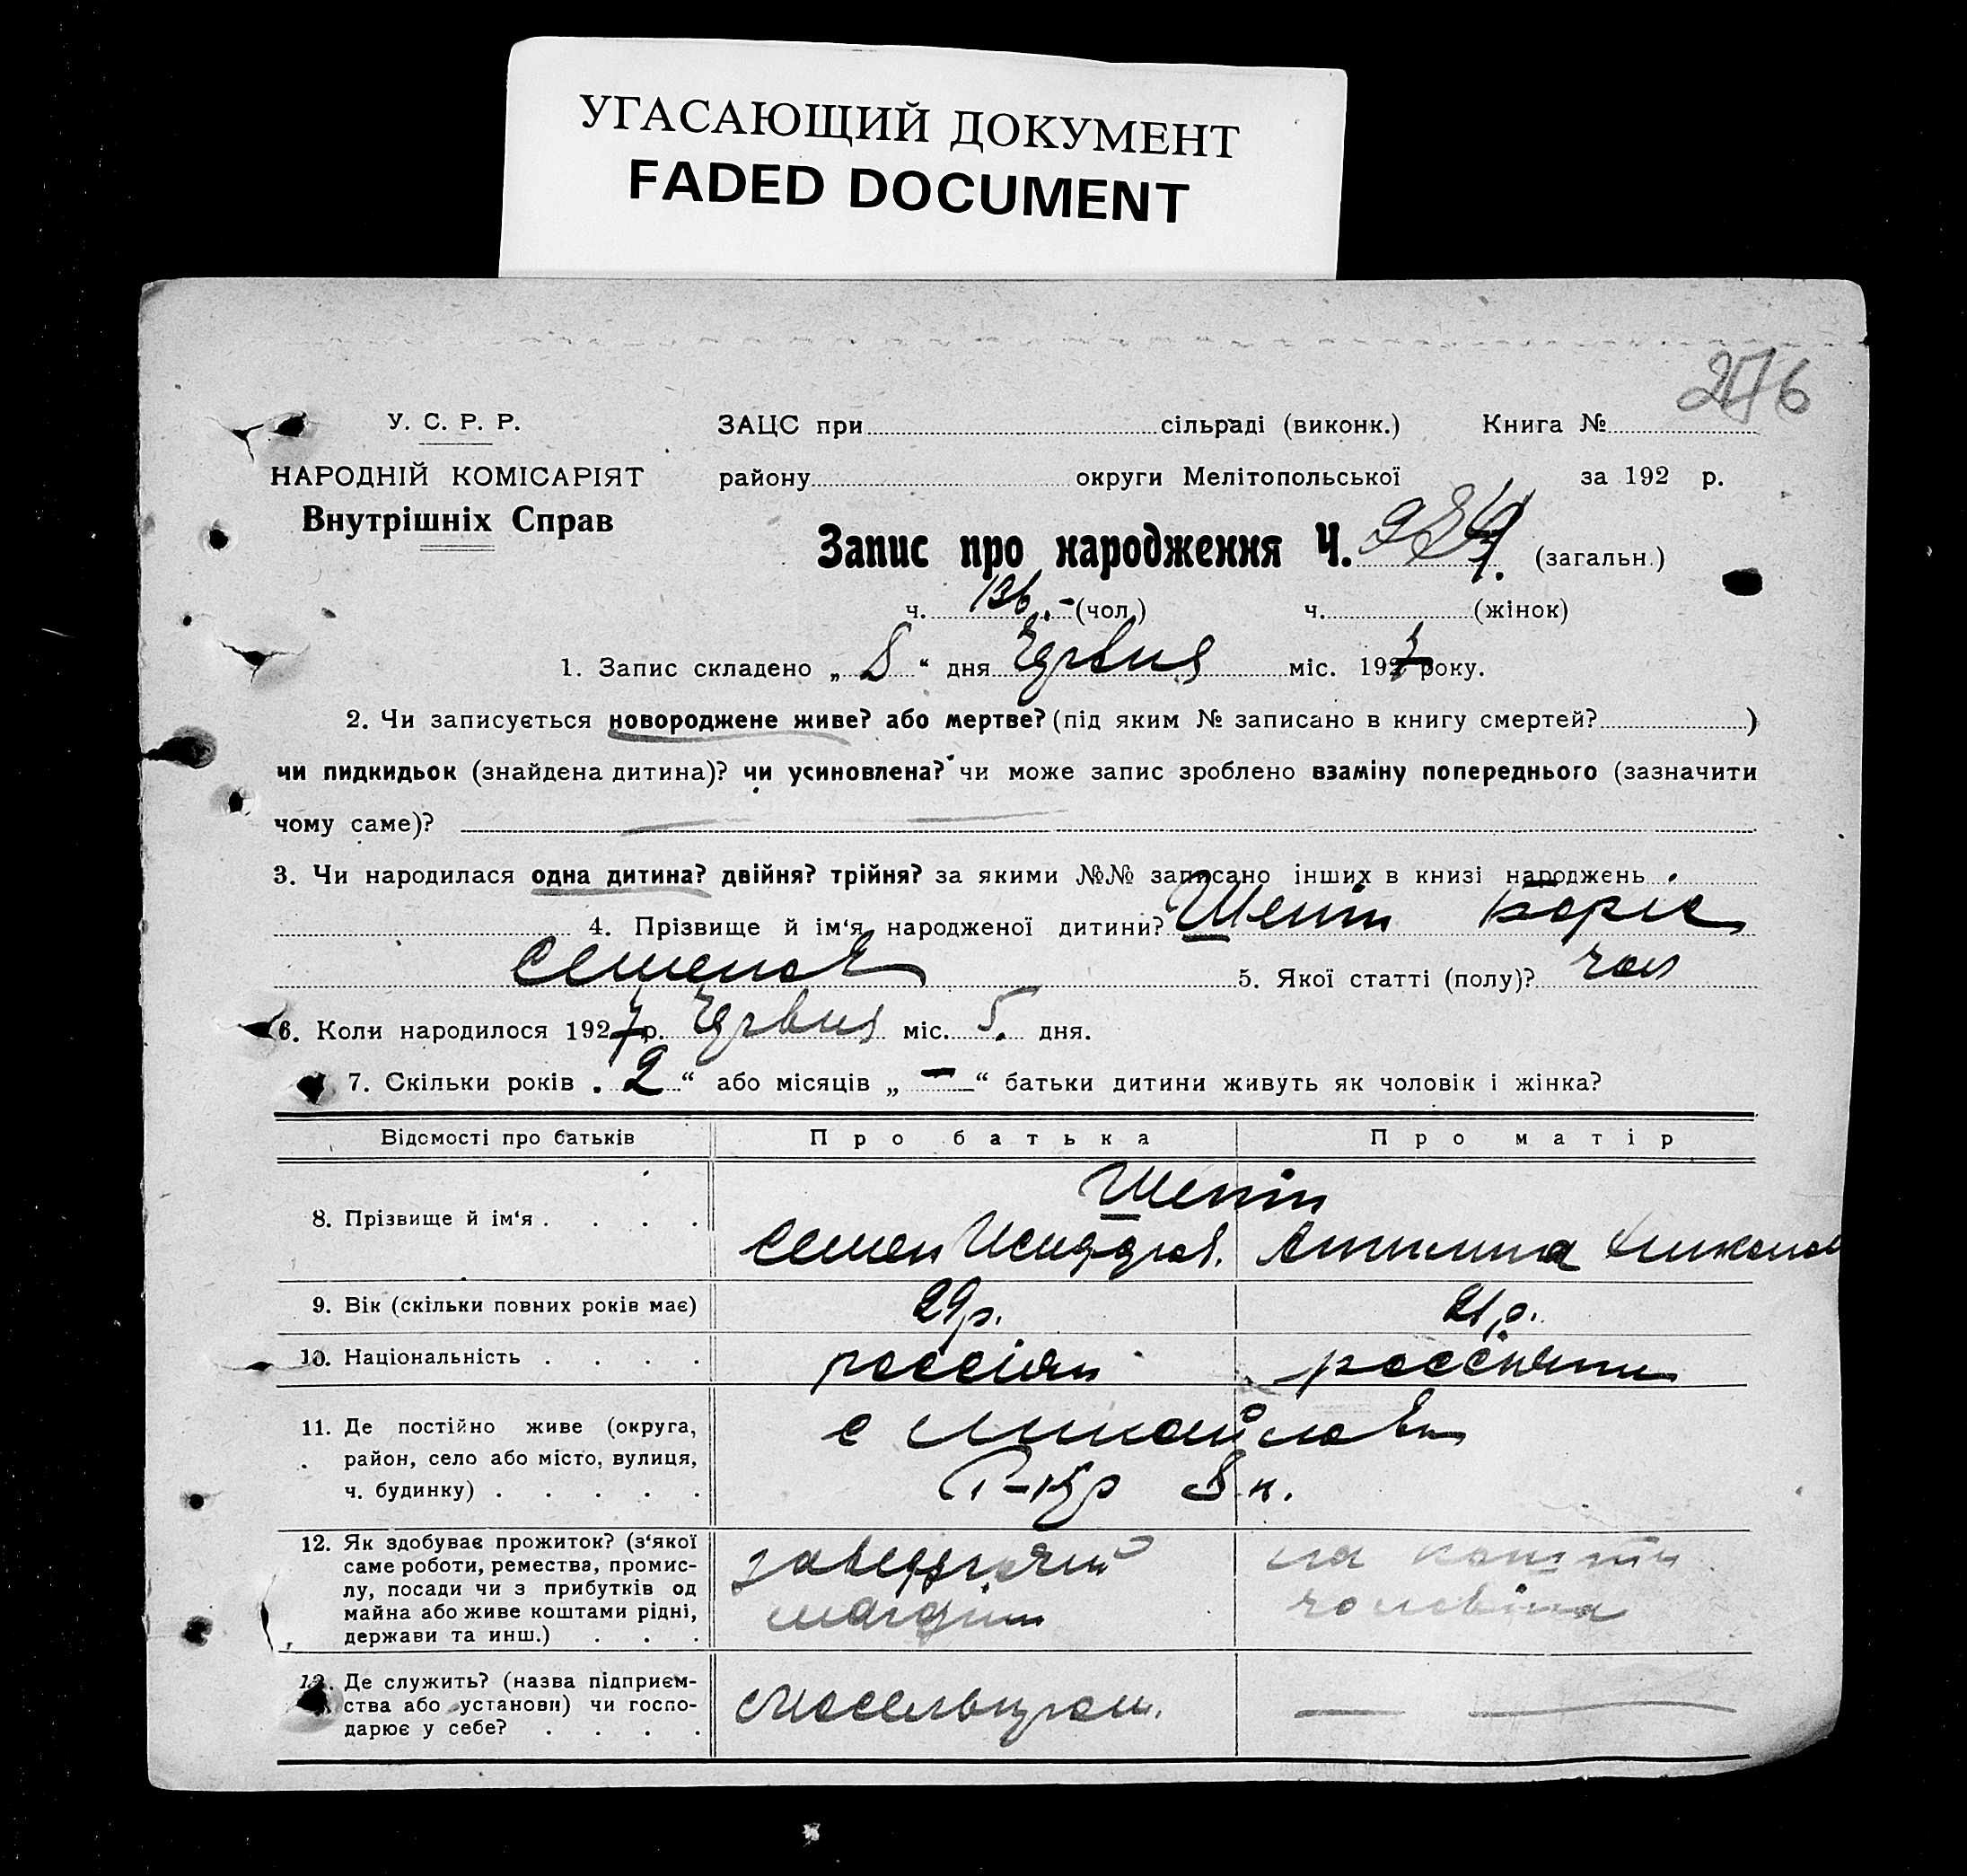 УГАСАЮЩИЙ ДОКУМЕНТ
FADED DOCUMENT
У. С. Р. Р.
НАРОДНІЙ КОМІСАРІЯТ
Внутрішніх Справ
ЗАЦС при сільраді (виконк.) Книга №
району округи Мелітопольської за 192 р.
Запис про народження Ч. (загальн.)
ч. 136 (чол.) ч. (жінок)
1. Запис складено „ 8 “ дня міс. 1927 року.
2. Чи записується новороджене живе? або мертве? (під яким № записано в книгу смертей? )
чи пидкидьок (знайдена дитина)? чи усиновлена? чи може запис зроблено взаміну попереднього (зазначити
чому саме)?
3. Чи народилася одна дитина? двійня? трійня? за якими №№ записано інших в книзі народжень
4. Прізвище й ім‘я народженої дитини? Борис
Семенов 5. Якої статті (полу)? чол
6. Коли народилося 1927 р. міс. 5. дня.
7. Скільки років „ 2 “ або місяців „ — “ батьки дитини живуть як чоловік і жінка?
Відомості про батьків Про батька Про матір
8. Прізвище й ім‘я . . . .
Семен
9. Вік (скільки повних років має) 29 р. 21 р.
10. Національність . . . . россіян россіянин
11. Де постійно живе (округа,
район, село або місто, вулиця,
ч. будинку) . . . . .
с Михайлівка
12. Як здобуває прожиток? (з‘якої
саме роботи, ремества, промис-
лу, посади чи з прибутків од
майна або живе коштами рідні,
держави та инш.) . . .
на кошти
чоловіка
13. Де служить? (назва підприєм-
ства або установи) чи госпо-
дарює у себе? . . . .